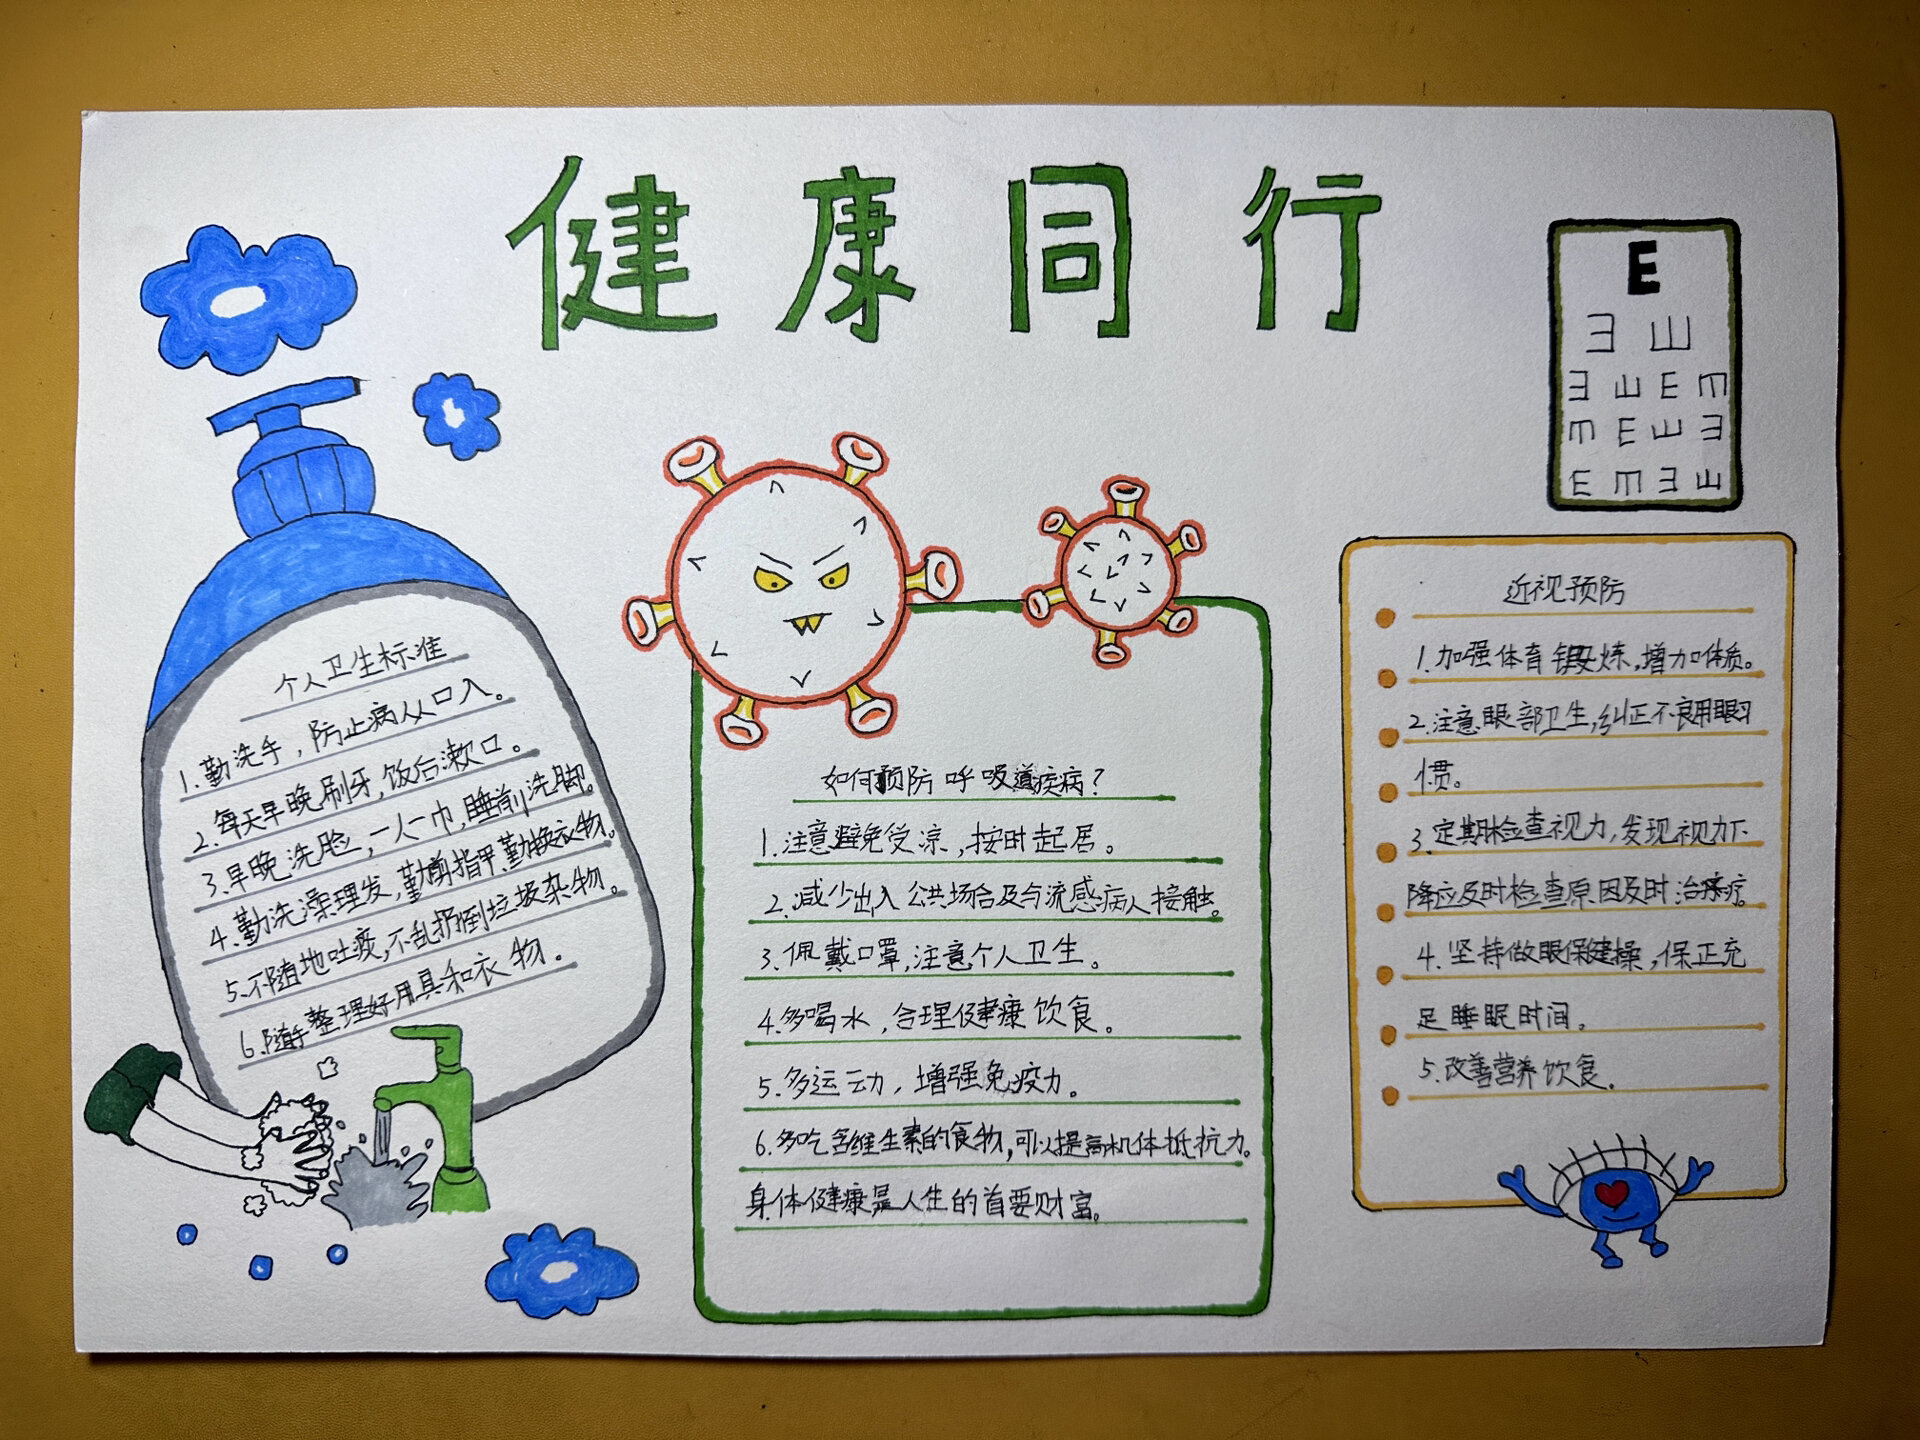 健康同行
个人卫生标准
1.勤洗手，防止病从口入。
2.每天早晚刷牙，饭后漱口。
3.早晚洗脸，一人一巾，睡前洗脚。
4.勤洗澡理发，勤剪指甲勤换衣物。
5.不随地吐痰，不乱扔倒垃圾杂物。
6.随手整理好用具和衣物。
如何预防呼吸道疾病？
1.注意避免受凉，按时起居。
2.减少出入公共场合及与流感病人接触。
3.佩戴口罩，注意个人卫生。
4.多喝水，合理健康饮食。
5.多运动，增强免疫力。
6.多吃含维生素的食物，可以提高机体抵抗力。
身体健康是人生的首要财富。
E
ヨ 山
近视预防
1.加强体育锻炼，增加体质。
2.注意眼部卫生，纠正不良用眼习
惯。
3.定期检查视力，发现视力下
降应及时检查原因及时治疗。
4.坚持做眼保健操，保正充
足睡眠时间。
5.改善营养饮食。